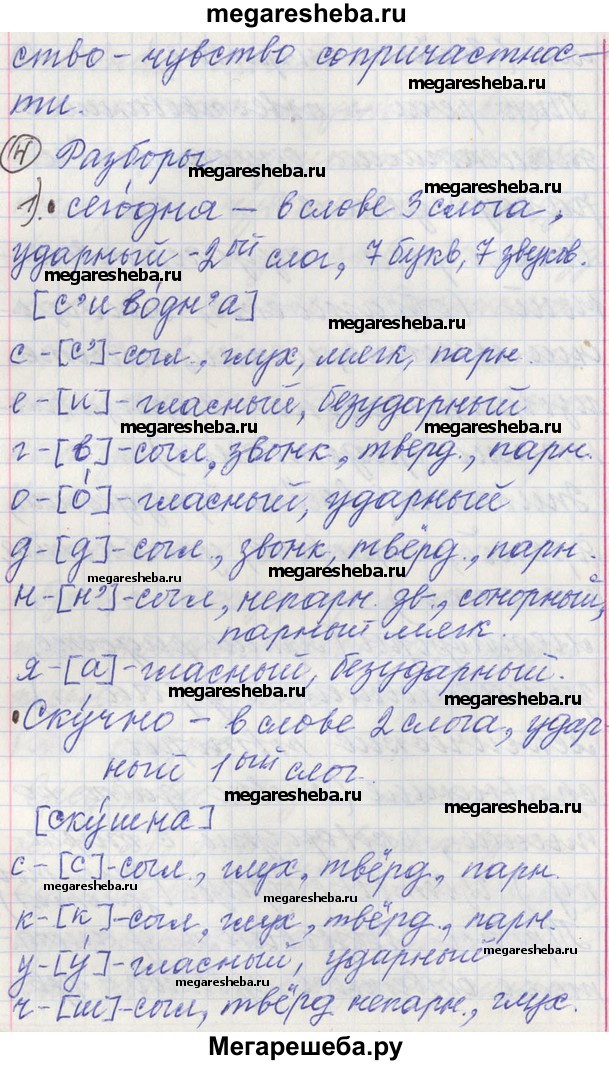 megaresheba.ru
ство - чувство сопричастнос-
megaresheba.ru
ти.
④ Разборы
megaresheba.ru
1). • сего́дня - в слове 3 слога,
megaresheba.ru
ударный - 2ый слог, 7 букв, 7 звуков.
megaresheba.ru
[с'иво́дн'а]
megaresheba.ru
с - [с'] - согл., глух, мягк, парн.
е - [и] - гласный, безударный
megaresheba.ru megaresheba.ru
г - [в] - согл, звонк, тверд., парн.
о - [о́] - гласный, ударный
megaresheba.ru
д - [д] - согл., звонк, твёрд., парн.
megaresheba.ru megaresheba.ru
н - [н'] - согл, непарн. зв., сонорный,
парный мягк.
я - [а] - гласный, безударный.
megaresheba.ru megaresheba.ru
• Ску́чно - в слове 2 слога, удар-
ный 1ый слог.
megaresheba.ru megaresheba.ru
[ску́шна]
с - [с] - согл., глух, твёрд, парн.
megaresheba.ru megaresheba.ru
к - [к] - согл, глух, твёрд., парн.
у - [у́] - гласный, ударный
megaresheba.ru megaresheba.ru
ч - [ш] - согл, твёрд непарн., глух.
Мегарешеба.ру